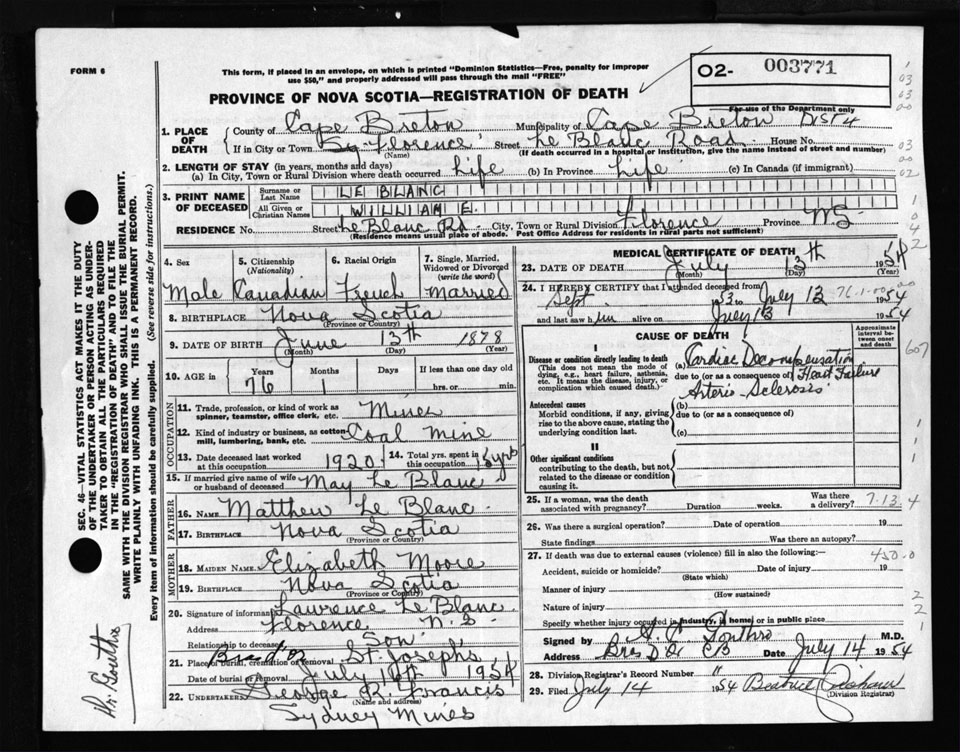 FORM 6
This form, if placed in an envelope, on which is printed "Dominion Statistics—Free, penalty for improper
use $50," and properly addressed will pass through the mail "FREE"
02- 003771
For use of the Department only
PROVINCE OF NOVA SCOTIA—REGISTRATION OF DEATH
1. PLACE OF DEATH County of Cape Breton Municipality of Cape Breton Dist 4
If in City or Town Florence (Name) Street Le Blanc Road House No.
(If death occurred in a hospital or institution, give the name instead of street and number)
2. LENGTH OF STAY (in years, months and days)
(a) In City, Town or Rural Division where death occurred Life (b) In Province Life (c) In Canada (if immigrant)
3. PRINT NAME OF DECEASED Surname or Last Name LE BLANC
All Given or Christian Names WILLIAM E.
RESIDENCE No. Street Le Blanc Rd City, Town or Rural Division Florence Province NS
(Residence means usual place of abode. Post Office Address for residents in rural parts not sufficient)
4. Sex Male
5. Citizenship (Nationality) Canadian
6. Racial Origin French
7. Single, Married, Widowed or Divorced (write the word) Married
8. BIRTHPLACE Nova Scotia
(Province or Country)
9. DATE OF BIRTH June 13th 1878
(Month) (Day) (Year)
10. AGE in Years 76 Months 1 Days If less than one day old hrs. or min.
OCCUPATION
11. Trade, profession, or kind of work as spinner, teamster, office clerk, etc. Miner
12. Kind of industry or business, as cotton mill, lumbering, bank, etc. Coal Mine
13. Date deceased last worked at this occupation 1920
14. Total yrs. spent in this occupation yrs
15. If married give name of wife or husband of deceased May Le Blanc
FATHER
16. NAME Matthew Le Blanc
17. BIRTHPLACE Nova Scotia
MOTHER
18. MAIDEN NAME Elizabeth Moore
19. BIRTHPLACE Nova Scotia
(Province or Country)
20. Signature of informant Lawrence Le Blanc
Address Florence N.S.
Relationship to deceased Son
21. Place of burial, cremation or removal St. Josephs
Date of burial or removal July 16th 1954
22. UNDERTAKER George R. Francis
(Name and address)
Sydney Mines
MEDICAL CERTIFICATE OF DEATH
23. DATE OF DEATH July 13th 1954
(Month) (Day) (Year)
24. I HEREBY CERTIFY that I attended deceased from
Sept 53 to July 13 1954
76-1-00
and last saw him alive on July 13 1954
CAUSE OF DEATH
Approximate interval between onset and death
I
Disease or condition directly leading to death
(This does not mean the mode of dying, e.g., heart failure, asthenia, etc. It means the disease, injury, or complication which caused death.)
(a) Cardiac Decompensation
due to (or as a consequence of) Heart Failure
Arterio Sclerosis
Antecedent causes
Morbid conditions, if any, giving rise to the above cause, stating the underlying condition last.
(b)
due to (or as a consequence of)
(c)
II
Other significant conditions
contributing to the death, but not related to the disease or condition causing it.
25. If a woman, was the death associated with pregnancy? Duration weeks. Was there a delivery?
7-13-4
26. Was there a surgical operation? Date of operation 19
State findings Was there an autopsy?
27. If death was due to external causes (violence) fill in also the following:—
Accident, suicide or homicide? Date of injury 19
(State which)
450-0
Manner of injury
(How sustained)
Nature of injury
Specify whether injury occurred in industry, in home, or in public place
Signed by Gouthro M.D.
Address Date July 14 1954
28. Division Registrar's Record Number
29. Filed July 14 1954 Beatrice
(Division Registrar)
SEC. 46—VITAL STATISTICS ACT MAKES IT THE DUTY
OF THE UNDERTAKER OR PERSON ACTING AS UNDER-
TAKER TO OBTAIN ALL THE PARTICULARS REQUIRED
IN THE "REGISTRATION OF DEATH" AND TO FILE THE
SAME WITH THE DIVISION REGISTRAR WHO SHALL ISSUE THE BURIAL PERMIT.
WRITE PLAINLY WITH UNFADING INK. THIS IS A PERMANENT RECORD.
Every item of information should be carefully supplied. (See reverse side for instructions.)
Dr. Gouthro